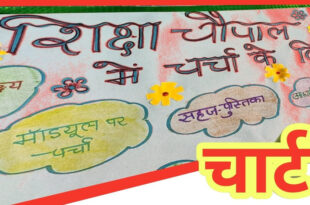 शिक्षा चौपाल
में चर्चा के
मॉड्यूल पर
-चर्चा
सहज-पुस्तिका
चार्ट